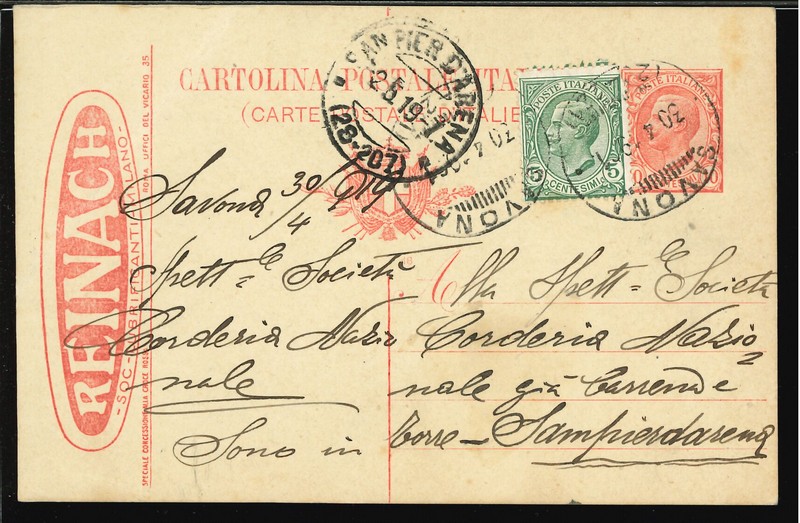 CARTOLINA POSTALE ITA
(CARTE POSTALE D'ITALIE)
REINACH
-SOC. LUBRIFICANTI-MILANO-
SPECIALE CONCESSIONE ALLA CROCE ROSSA
ROMA UFFICI DEL VICARIO 35
SAN PIER D'ARENA
(28-207)
POSTE ITALIANE
5 CENTESIMI 5
POSTE ITALIANE
SAVONA
30 4
SAVONA
30 4
Savona 30/4 19
Spett=e Società
Corderia Nazio
nale
Sono in
Alla Spett=e Società
Corderia Nazio=
nale già Carrena e
Torre - Sampierdarena